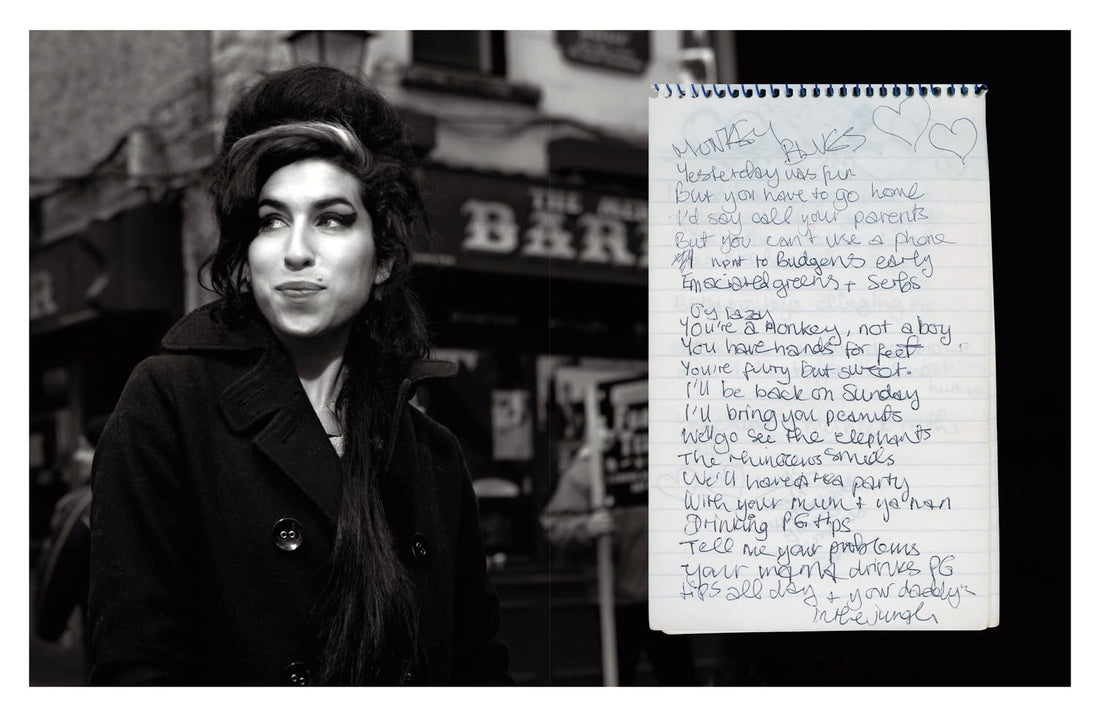 THE
BAR
MONKEY BLUES
Yesterday was fun
but you have to go home
I'd say call your parents
But you can't use a phone
I went to Budgens early
Emaciated greens + Serbs
Oy lazy
You're a Monkey, not a boy
You have hands for feet
You're furry but sweet.
I'll be back on Sunday
I'll bring you peanuts
We'll go see the elephants
The rhinoceros smells
We'll have a tea party
With your mum + ya nan
Drinking PG tips
Tell me your problems
Your mama drinks PG
tips all day + your daddy's
In the jungle